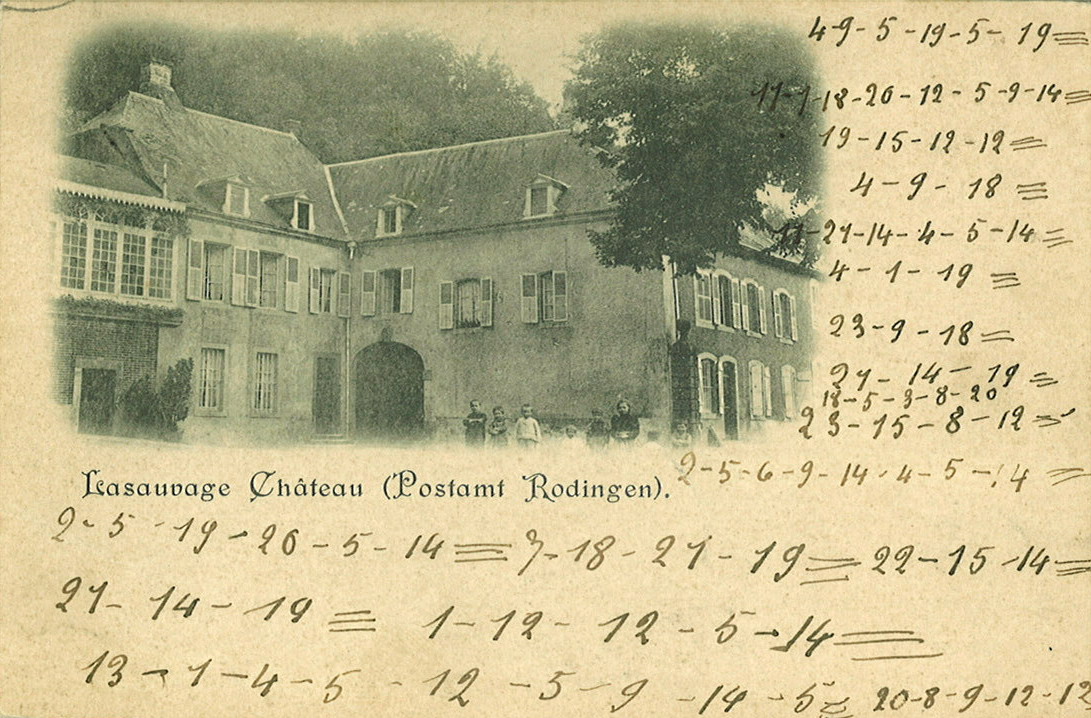 4-9-5-19-5-19=
11-1-18-20-12-5-9-14=
19-15-12-12=
4-9-18=
11-21-14-4-5-14=
4-1-19=
23-9-18=
21-14-19=
18-5-3-8-20
23-15-8-12=
2-5-6-9-14-4-5-14=
Lasauvage Château (Postamt Rodingen).
2-5-19-20-5-14= 7-18-21-19= 22-15-14=
21-14-19= 1-12-12-5-14=
13-1-4-5-12-5-9-14-5= 20-8-9-12-12